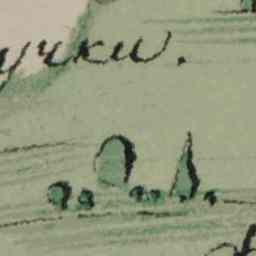 учки.